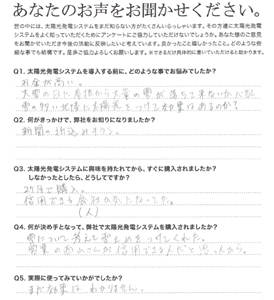 あなたのお声をお聞かせください。
世の中には、太陽光発電システムをまだ知らない方がたくさんいらっしゃいます。その方達に太陽光発電
システムをよく知っていただくためにアンケートにご協力していただけないでしょうか。あなた様のご意見
をお聞かせいただき今後の活動に反映したいと考えています。良かったこと嬉しかったこと。どのような些
細な事でも結構です。是非ご協力よろしくお願いします。※できるだけ具体的に書いていただけると助かります。
Q1. 太陽光発電システムを導入する前に、どのような事でお悩みでしたか？
お金が高い。
大雪の日に屋根から大量の雪が落ちて来ないか
雪の多い北陸で太陽光をつけて効果はあるのか？
Q2. 何がきっかけで、弊社をお知りになりましたか？
新聞の折込みチラシ。
Q3. 太陽光発電システムに興味を持たれてから、すぐに購入されましたか？
しなかったとしたら、どうしてですか？
で購入。
信用できる会社がなかった。
(人)
Q4. 何が決め手となって、弊社で太陽光発電システムを購入されましたか？
雪について考えて雪止めをつけてくれた。
営業の さんが信用できる人だと思ったから。
Q5. 実際に使ってみていかがでしたか？
まだ効果は わかりません。